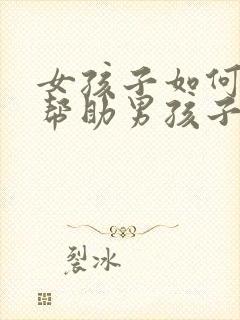 女孩子如何
帮助男孩子
裂冰